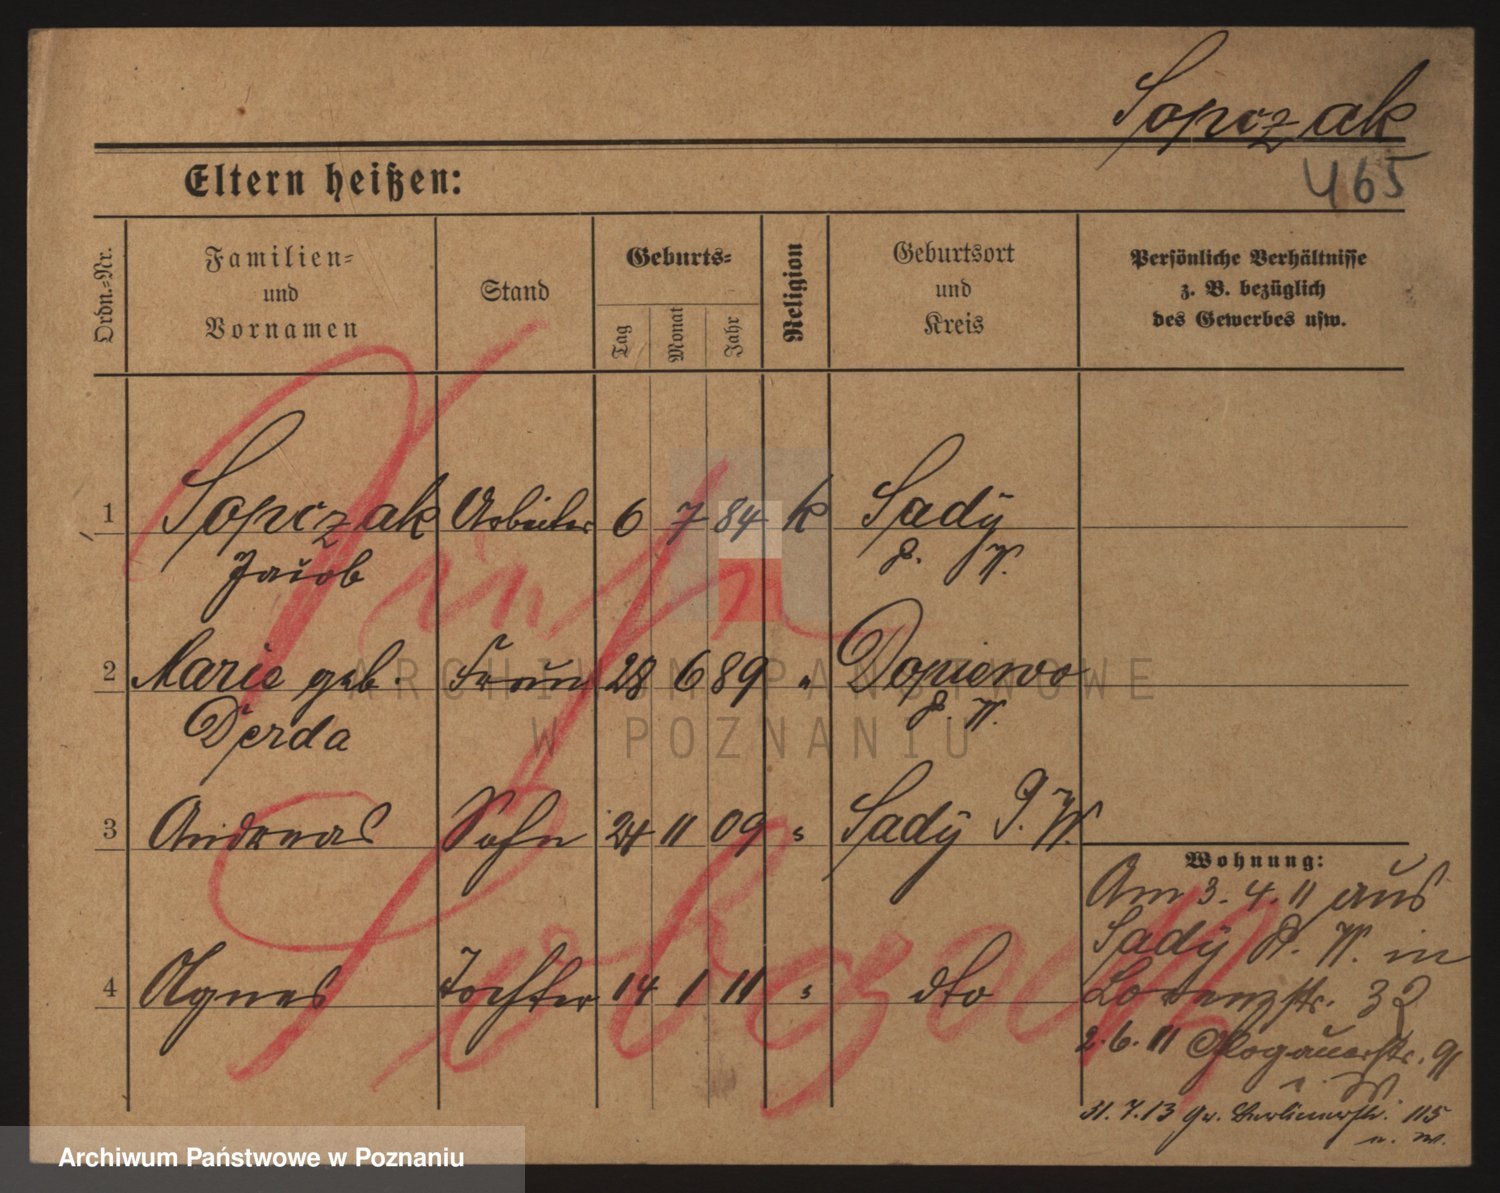 Sopczak
465
Eltern heißen:
Ordn.-Nr.
Familien-
und
Vornamen
Stand
Geburts-
Tag
Monat
Jahr
Religion
Geburtsort
und
Kreis
Persönliche Verhältnisse
z. B. bezüglich
des Gewerbes usw.
1 Sopczak Arbeiter 6 7 84 k Sady
Jacob P. W.
2 Marie geb. Frau 28 6 89 " Dopiewo
Derda P. W.
3 Andreas Sohn 24 11 09 " Sady P. W.
4 Agnes Tochter 14 1 11 " dto
Wohnung:
Am 3. 4. 11 aus
Sady P. W. in
Lorenzstr. 32
2. 6. 11 Glogauerstr. 91
31. 7. 13 Gr. Berlinerstr. 115
u. w.
ARCHIWUM PAŃSTWOWE
W POZNANIU
Archiwum Państwowe w Poznaniu